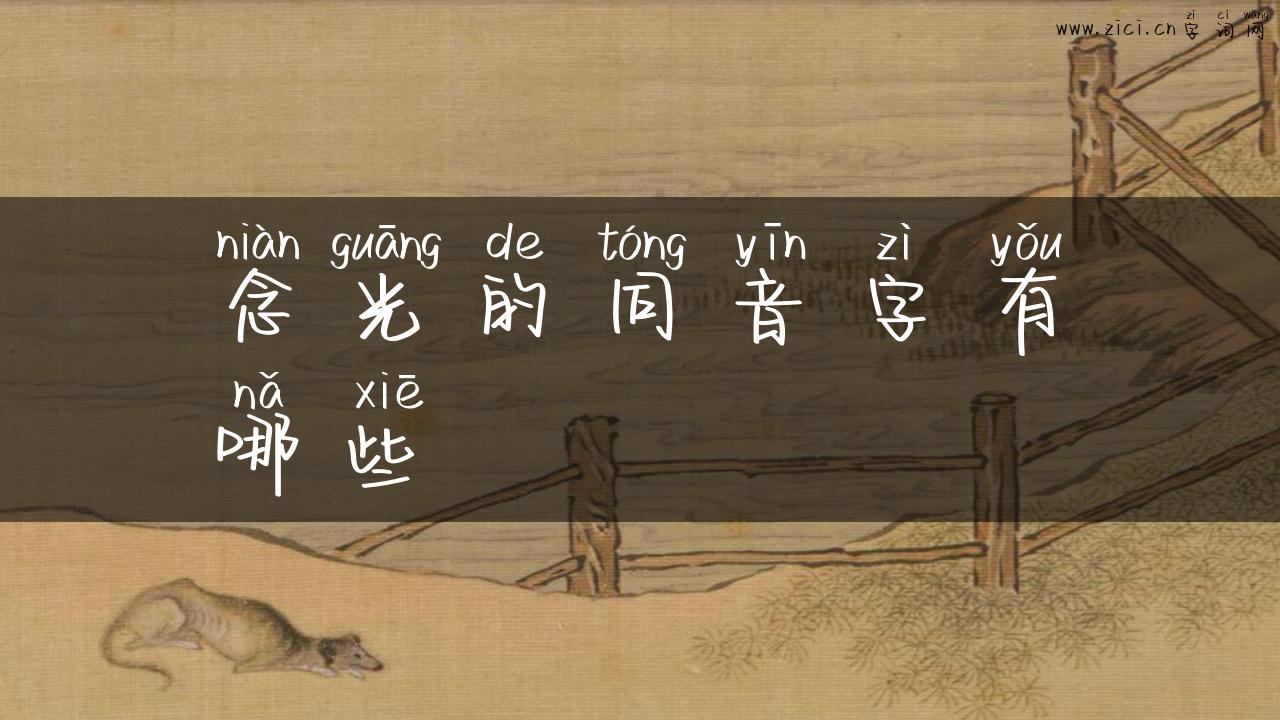 zì cí wǎng
www.zici.cn 字词网
niàn guāng de tóng yīn zì yǒu
念光的同音字有
nǎ xiē
哪些